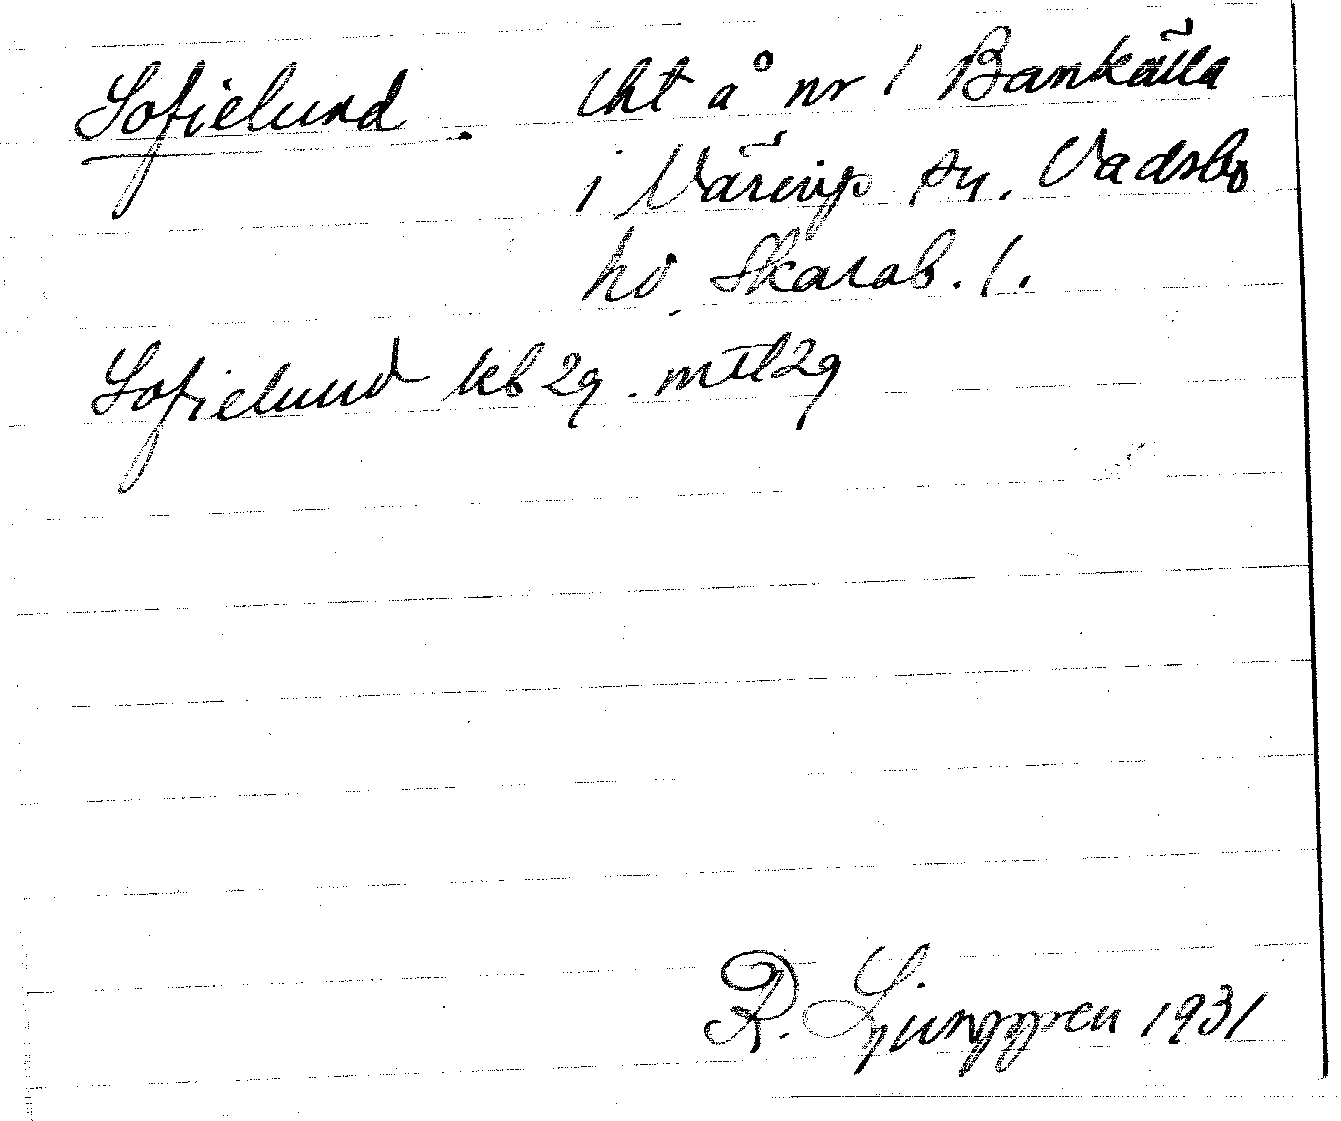 Sofielund. lht å nr 1 Bankälla
i Värings sn. Vadsbo
hd, Skarab. l.
Sofielund kb 2g. mtl 2g
R. Ljunggren 1931